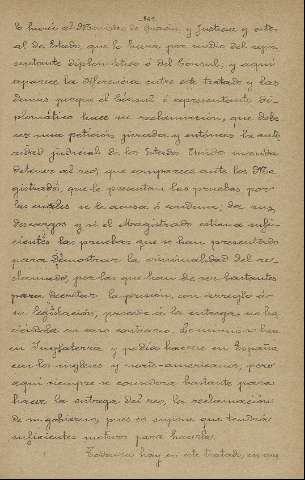 lo envía al Ministro de Gracia y Justicia y este
al de Estado, que lo hace por medio del repre
sentante diplomático ó del Cónsul, y aquí
aparece la diferencia entre este tratado y los
demas porque el Cónsul ó representante di-
plomático hace su reclamacion, que debe
ser una peticion jurada y entónces la auto
ridad judicial de los Estados Unidos manda
detener al reo, que comparece ante los Ma
gistrados, que le presentan las pruebas por
las cuales se le acusa ó condena; da sus
descargos y si el Magistrado estima sufi-
cientes las pruebas que se han presentado
para demostrar la criminalidad del re-
clamado, por las que han de ser bastantes
para decretar la prision, con arreglo á
su legislacion, procede á la entrega no ha
ciéndola en caso contrario. Lo mismo se hace
en Inglaterra y podia hacerse en España
con los ingleses y norte-americanos; pero
aquí siempre se considera bastante para
hacer la entrega del reo, la reclamacion
de su gobierno, pues se supone que tendrá
suficientes motivos para hacerla.
Todavia hay en este tratado, en que